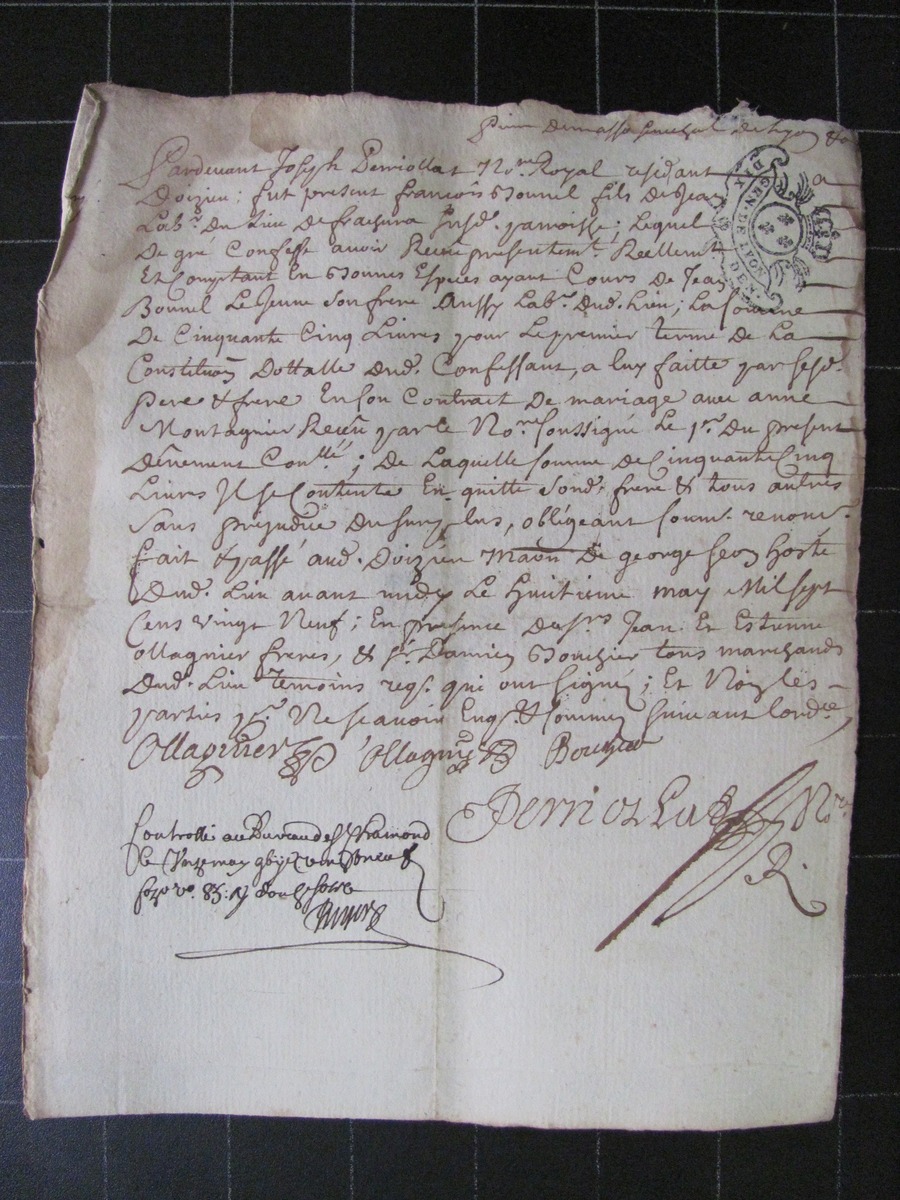 de Lyon &a
Pardevant Joseph Perriollat No.re Royal residant a
Doizieu; fut present francois Bonnel fils de Jean
Lab.r du Lieu de frachura susd. parroisse; Lequel
De gré Confesse avoir Receu presentem.t Reellem.t
Et Comptant En Bonnes Especes ayant Cours de Jean
Bonnel Le Jeune son frere Aussy Lab.r dud. Lieu; La somme
De Cinquante Cinq Livres pour Le premier terme de La
Constitu͠on Dottalle dud. Confessant, a luy faitte par sesd.
pere & frere En son Contract De mariage avec anne
Montagnier Receu par le No.re soussigné Le 1.er Du present
dûement Con.llé; De Laquelle somme de Cinquante Cinq
Livres Il se Contente En quitte sond. frere & tous autres
sans préjudice du surplus, obligeant soum. renonc.
fait & passé aud. Doizieu Maôn De george Hoste
Dud. Lieu avant midy Le huitieme may Mil sept
Cens vingt Neuf; En presence de s.rs Jean Et Estienne
Ollagnier freres, & s.r Damien Bouchier tous marchands
Dud. Lieu temoins req.s qui ont signé; Et Non les
parties p.r Ne scavoir Enq. & sommés suivant lord.ce
Ollagnier Ollagnier Bouchier
Perriollat No.re
R.
Controllé au Bureau de St Chamond
le may vingt neuf
fo vo 85. douze sols
GEN. DE LYON
DIX DEN